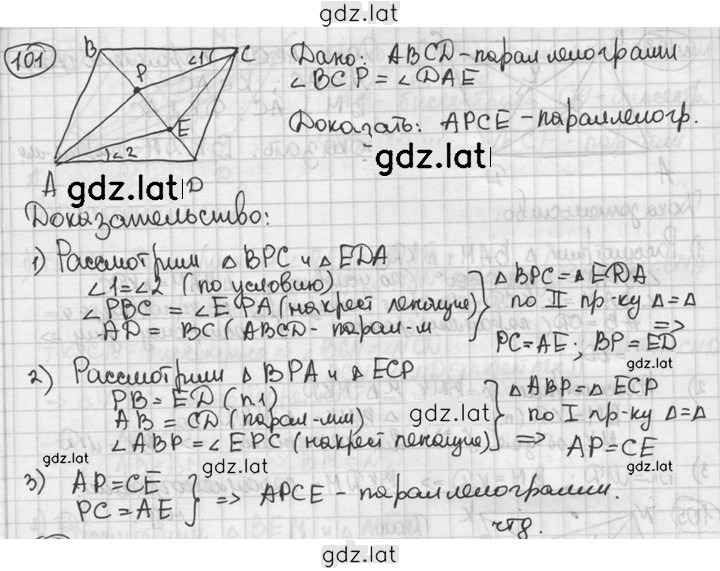 gdz.lat
101
B
C
P
∠1
E
∠2
A
D
Дано: ABCD - параллелограмм
∠BCP = ∠DAE
Доказать: APCE - параллелогр.
gdz.lat
gdz.lat
Доказательство:
1) Рассмотрим △ BPC и △ EDA
∠1=∠2 (по условию)
∠PBC = ∠EDA (накрест лежащие)
AD = BC (ABCD - парал-м
△ BPC = △ EDA
по II пр-ку △=△
=>
PC=AE; BP=ED
gdz.lat
2) Рассмотрим △ BPA и △ ECD
PB = ED (п.1)
AB = CD (парал-мм)
∠ABP = ∠EDC (накрест лежащие)
gdz.lat
△ ABP = △ ECD
по I пр-ку △=△
=> AP=CE
gdz.lat
gdz.lat
gdz.lat
3) AP=CE
PC=AE
=> APCE - параллелограмм.
чтд.
gdz.lat